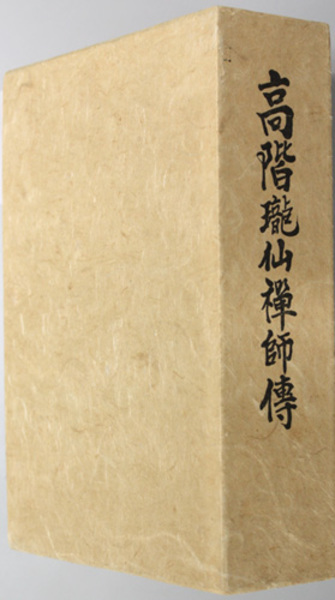 高階瓏仙禪師傳